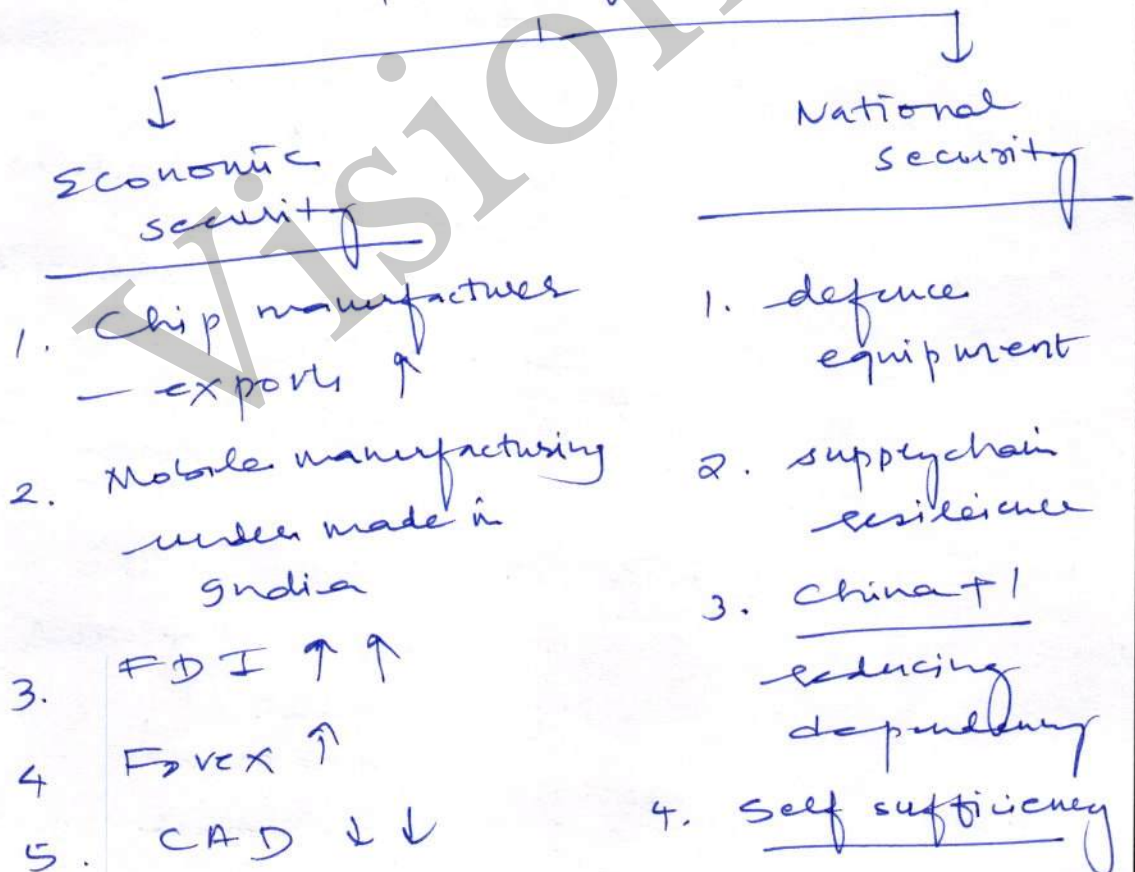 Economic
security
1. Chip manufactures
– exports ↑
2. Mobile manufacturing
under made in
India
3. FDI ↑ ↑
4 Forex ↑
5. CAD ↓ ↓
National
security
1. defence
equipment
2. supplychain
resileience
3. China + 1
reducing
dependency
4. Self sufficiency
Vision